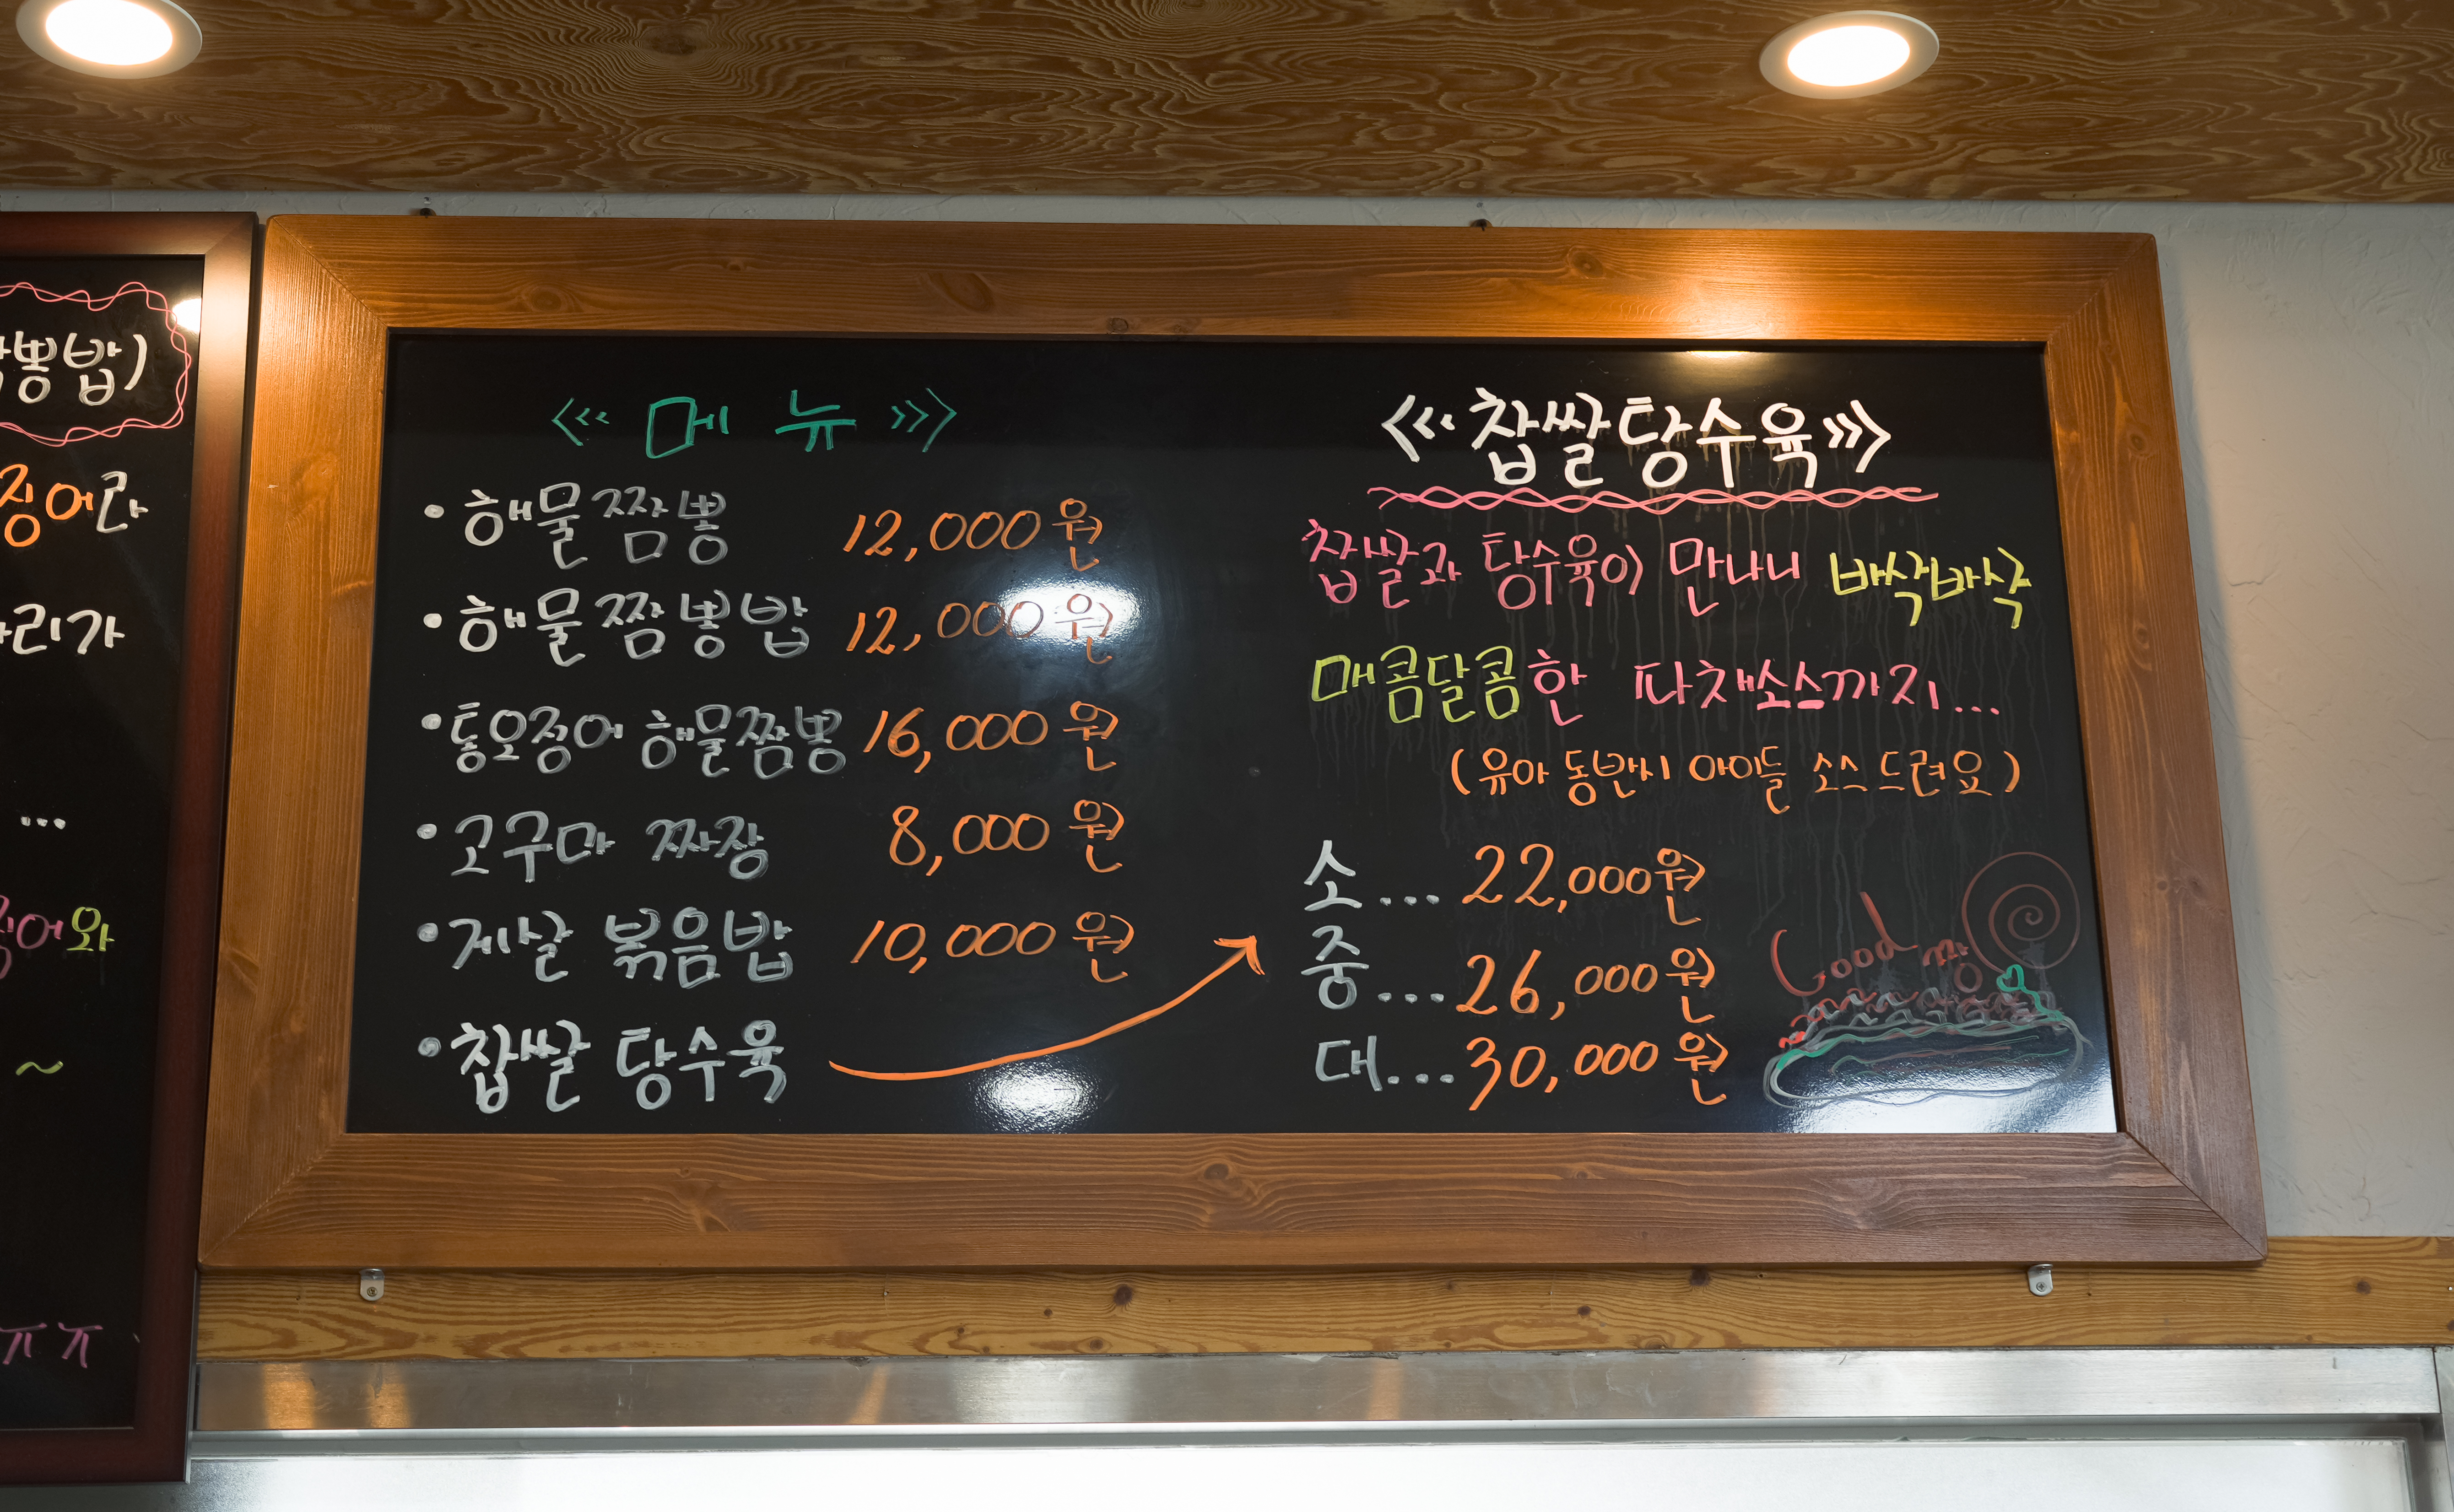 뽕밥)
징어라
리가
...
어와
~
ㅠㅠ
<<< 메뉴 >>>
• 해물짬뽕 12,000원
• 해물짬뽕밥 12,000원
• 통오징어 해물짬뽕 16,000원
• 고구마 짜장 8,000원
• 게살 볶음밥 10,000원
• 찹쌀 탕수육
<<< 찹쌀탕수육 >>>
찹쌀과 탕수육이 만나니 바삭바삭
매콤달콤한 파채소스까지...
(유아 동반시 아이들 소스 드려요)
소... 22,000원
중... 26,000원
대... 30,000원
Good 짱